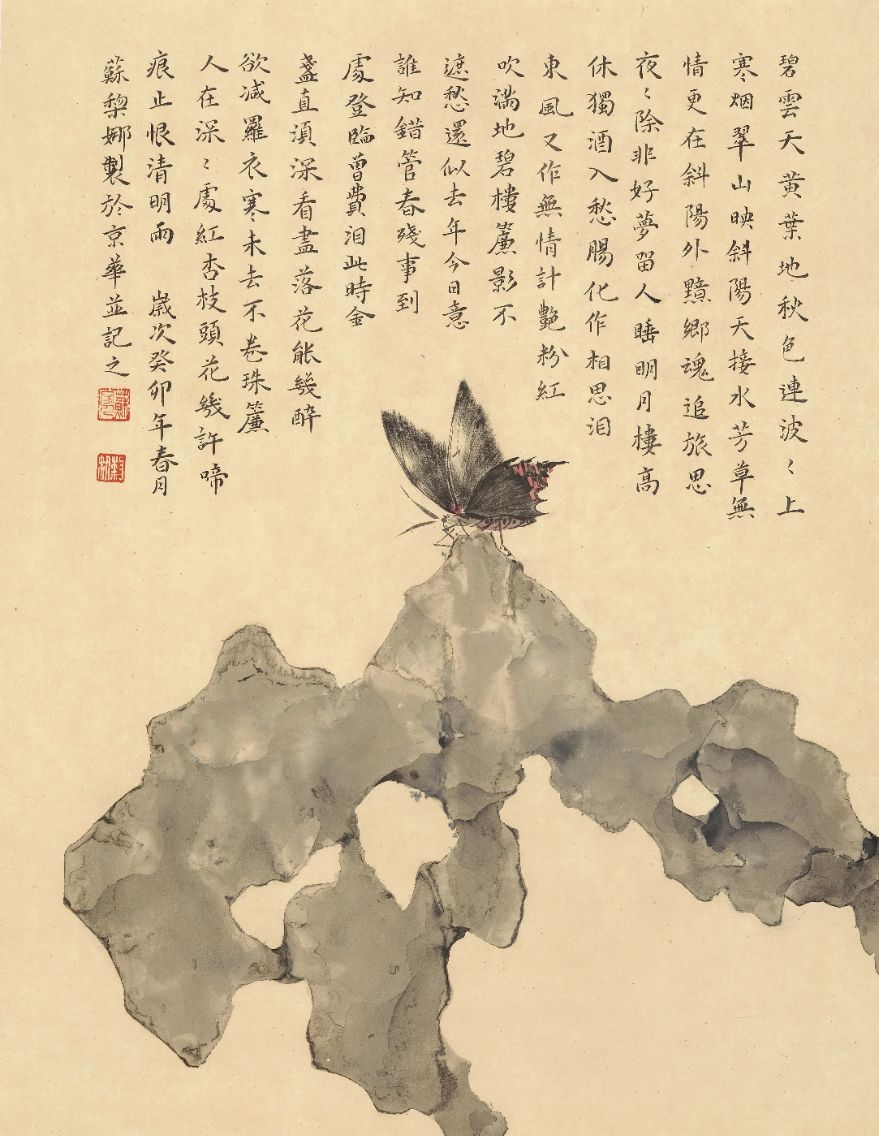 碧雲天黃葉地秋色連波〻上
寒烟翠山映斜陽天接水芳草無
情更在斜陽外黯鄉魂追旅思
夜〻除非好夢留人睡明月樓高
休獨酒入愁腸化作相思泪
東風又作無情計艷粉紅
吹滿地碧樓簾影不
遮愁還似去年今日意
誰知錯管春殘事到
處登臨曾費泪此時金
盞直須深看盡落花能幾醉
欲减羅衣寒未去不卷珠簾
人在深〻處紅杏枝頭花幾許啼
痕止恨清明雨 歲次癸卯年春月
蘇棃娜製於京華並記之